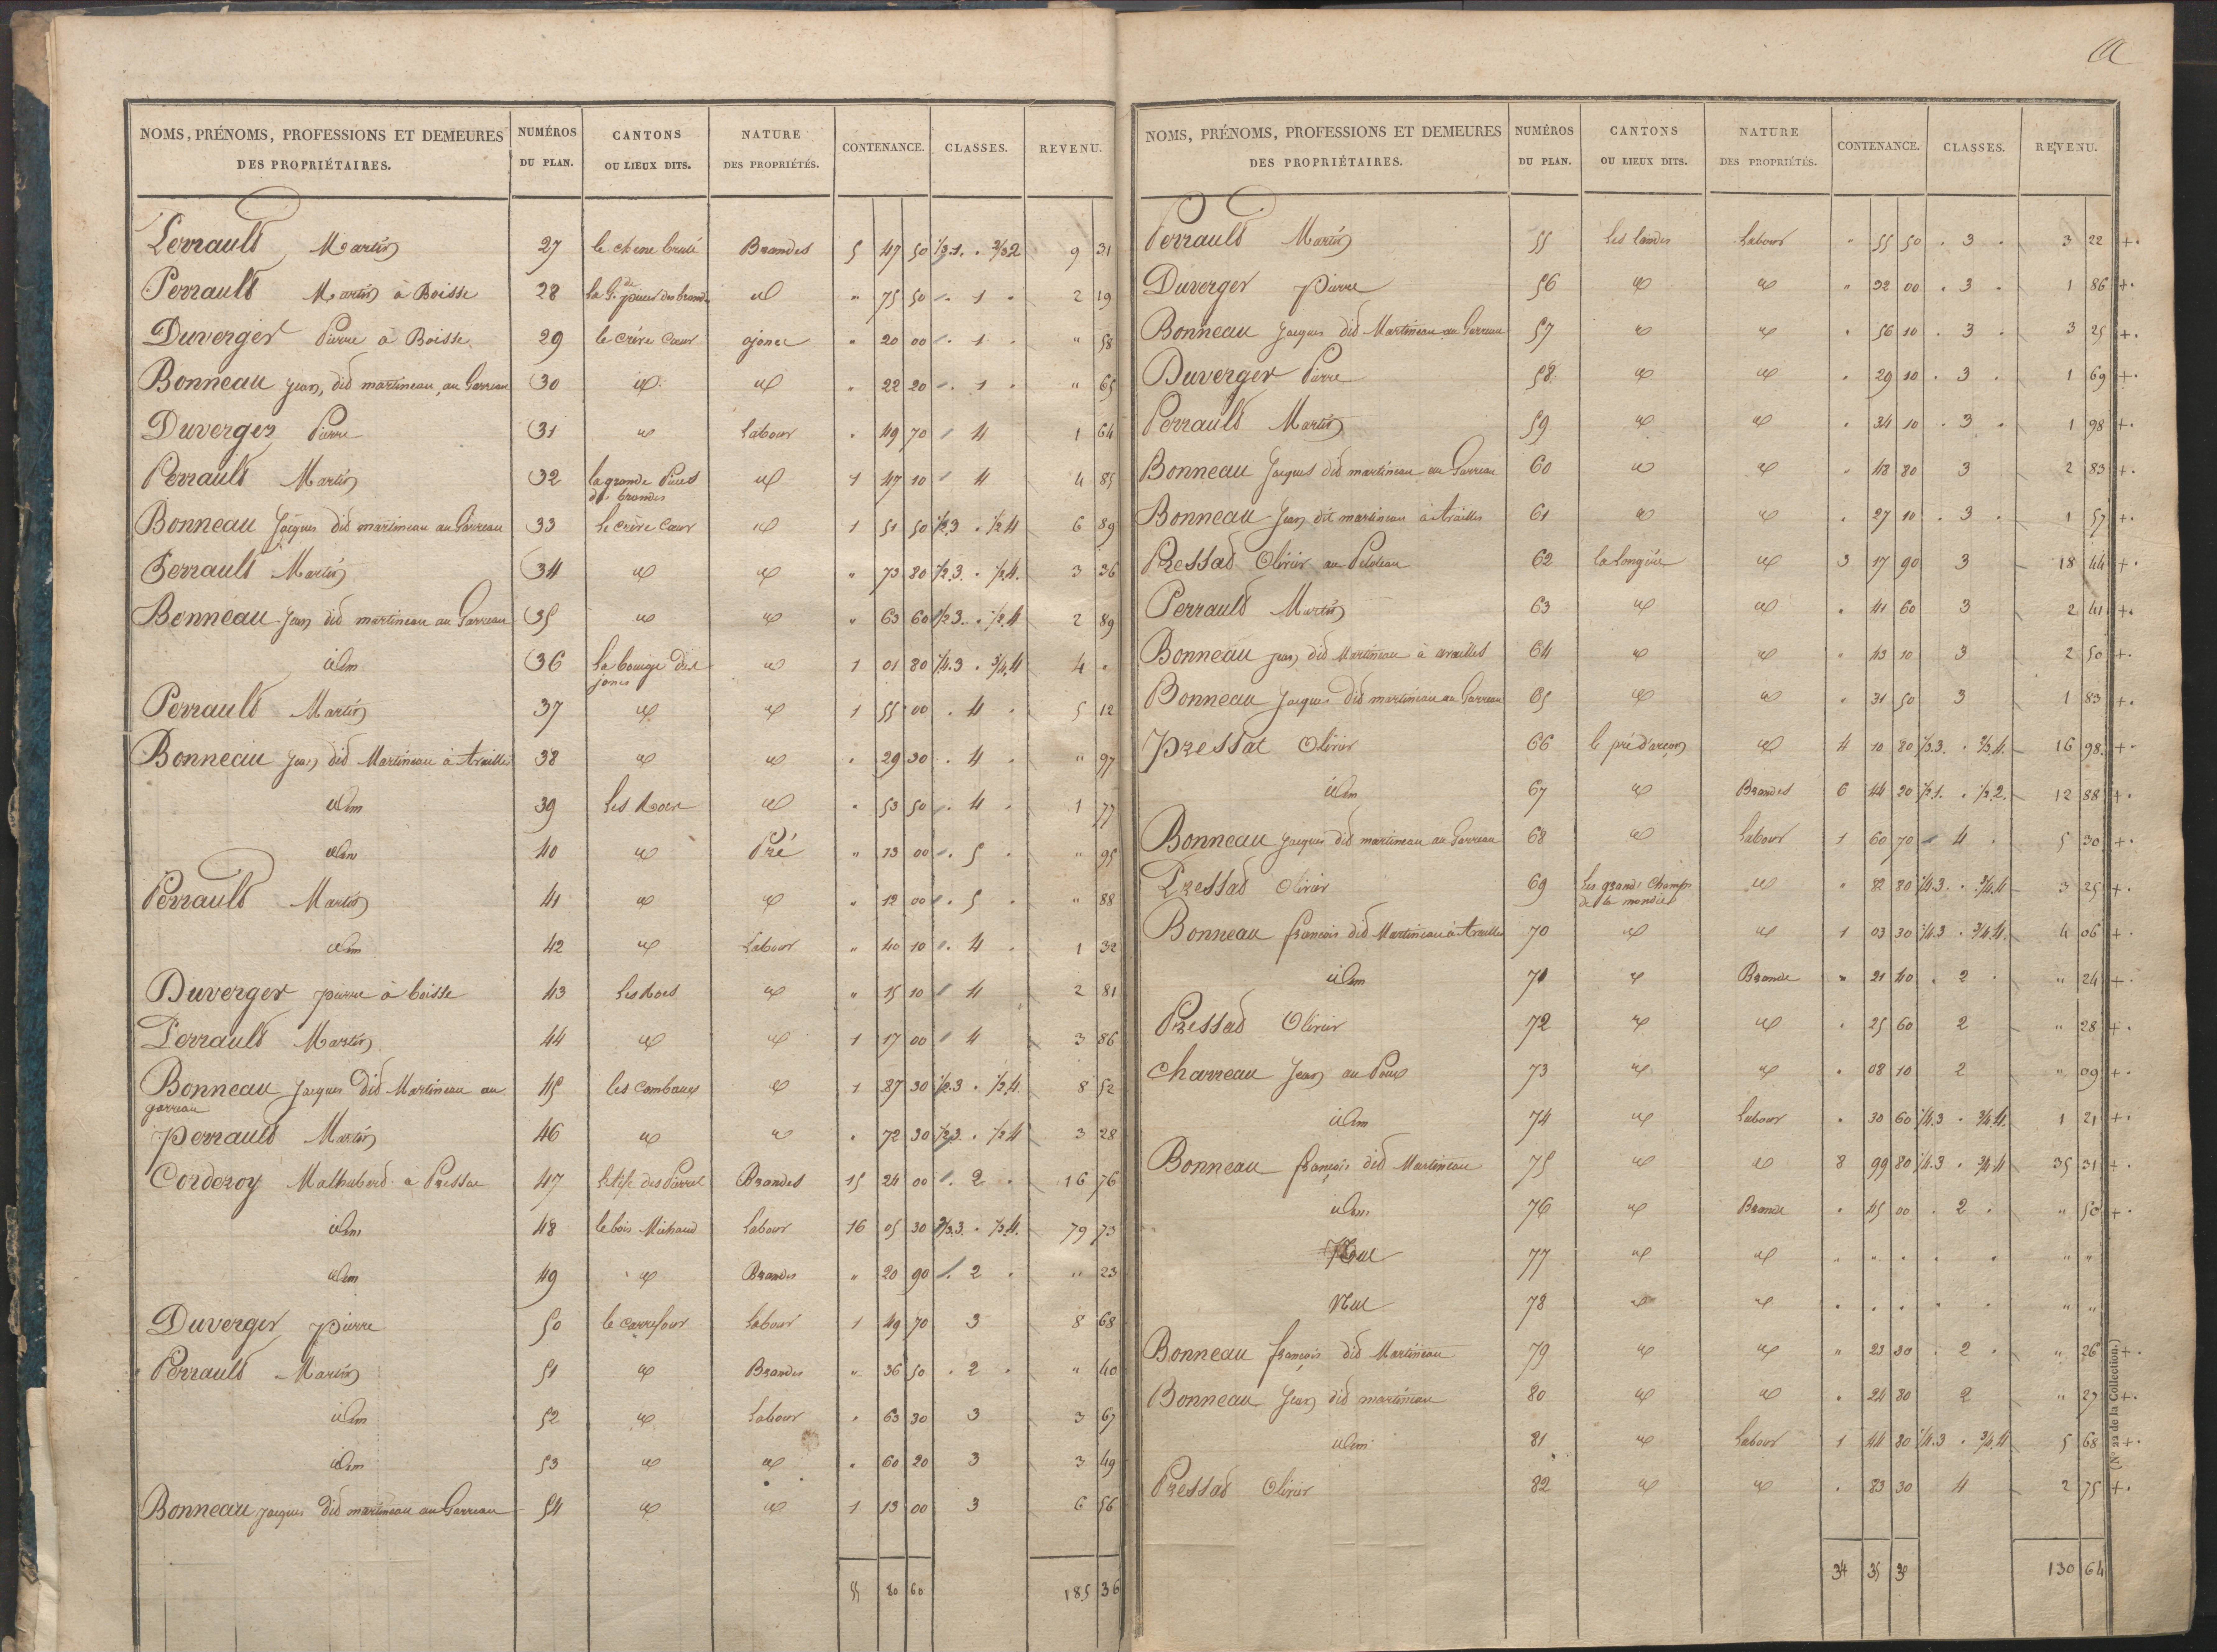 NOMS, PRÉNOMS, PROFESSIONS ET DEMEURES DES PROPRIÉTAIRES. NUMÉROS DU PLAN. CANTONS OU LIEUX DITS. NATURE DES PROPRIÉTÉS. CONTENANCE. CLASSES. REVENU.
Perrault Martin 27 le chene brulé Brandes 5 47 50 1/3 1. 2/3 2 9 31
Perrault Martin à Boisse 28 la Gde des brandes id " 75 50 1 2 19
Duverger Pierre à Boisse 29 le crève Cœur ajonc " 20 00 1 " 58
Bonneau Jean, dit martineau, au Garreau 30 id id " 22 20 1 " 65
Duverger Pierre 31 id labour " 49 70 4 1 64
Perrault Martin 32 la grande des brandes id 1 47 10 4 4 85
Bonneau Jacques dit martineau au Garreau 33 le crève Cœur id 1 51 50 1/2 3. 1/2 4 6 89
Perrault Martin 34 id id " 73 80 1/2 3. 1/2 4. 3 36
Bonneau Jean dit martineau au Garreau 35 id id " 63 60 1/2 3. 1/2 4 2 89
idem 36 la bouige des joncs id 1 01 80 1/4 3. 3/4 4 4 "
Perrault Martin 37 id id 1 55 00 4 5 12
Bonneau Jean dit Martineau à Availle 38 id id " 29 30 4 " 97
idem 39 les id " 53 50 4 1 77
idem 40 id Pré " 13 00 5 " 95
Perrault Martin 41 id id " 12 00 5 " 88
idem 42 id Labour " 40 10 4 1 32
Duverger pierre à boisse 43 les id " 15 10 4 2 81
Perrault Martin 44 id id 1 17 00 4 3 86
Bonneau Jacques dit Martineau au garreau 45 les combaux id 1 87 30 1/2 3. 1/2 4. 8 52
Perrault Martin 46 id id " 72 30 1/2 3. 1/2 4 3 28
Corderoy Malhabert à Pressac 47 des Brandes 15 24 00 2 16 76
idem 48 le bois Michaud labour 16 05 30 2/3 3. 1/3 4. 79 73
idem 49 id Brandes " 20 90 2 " 23
Duverger pierre 50 le carrefour labour 1 49 70 3 8 68
Perrault Martin 51 id Brandes " 36 50 2 " 40
idem 52 id labour " 63 30 3 3 67
idem 53 id id " 60 20 3 3 49
Bonneau Jacques dit martineau au Garreau 54 id id 1 13 00 3 6 56
55 20 60 185 36
NOMS, PRÉNOMS, PROFESSIONS ET DEMEURES DES PROPRIÉTAIRES. NUMÉROS DU PLAN. CANTONS OU LIEUX DITS. NATURE DES PROPRIÉTÉS. CONTENANCE. CLASSES. REVENU.
Perrault Martin 55 les landes labour " 55 50 3 3 22 +
Duverger pierre 56 id id " 32 00 3 1 86 +
Bonneau Jacques dit Martineau au Garreau 57 id id " 56 10 3 3 25 +
Duverger Pierre 58 id id " 29 10 3 1 69 +
Perrault Martin 59 id id " 34 10 3 1 98 +
Bonneau Jacques dit martineau au Garreau 60 id id " 48 80 3 2 83 +
Bonneau Jean dit martineau à Availles 61 id id " 27 10 3 1 57 +
Pressat Olivier au 62 la longère id 3 17 90 3 18 44 +
Perrault Martin 63 id id " 41 60 3 2 41 +
Bonneau Jean dit Martineau à availles 64 id id " 43 10 3 2 50 +
Bonneau Jacques dit martineau au Garreau 65 id id " 31 50 3 1 83 +
Pressat Olivier 66 le pré d'arçon id 4 10 80 1/3 3. 2/3 4. 16 98 +
idem 67 id Brandes 6 44 20 1/2 1. 1/2 2. 12 88 +
Bonneau Jacques dit martineau au Garreau 68 id labour 1 60 70 4 5 30 +
Pressat Olivier 69 les grands Champs de la id " 82 80 1/4 3. 3/4 4 3 25 +
Bonneau françois dit Martineau à Availles 70 id id 1 03 30 1/4 3. 3/4 4. 4 06 +
idem 71 id Brande " 21 40 2 " 24 +
Pressat Olivier 72 id id " 25 60 2 " 28 +
Charreau Jean au 73 id id " 08 10 2 " 09 +
idem 74 id labour " 30 60 1/4 3. 3/4 4. 1 21 +
Bonneau françois dit Martineau 75 id id 8 99 80 1/4 3. 3/4 4 35 31 +
idem 76 id Brande " 45 00 2 " 50 +
Nul 77 id id " " " " "
Nul 78 id id " " " " "
Bonneau françois dit Martineau 79 id id " 23 30 2 " 26 +
Bonneau Jean dit martineau 80 id id " 24 80 2 " 27 +
idem 81 id labour 1 44 80 1/4 3. 3/4 4 5 68 +
Pressat Olivier 82 id id " 83 30 4 2 75 +
34 35 30 130 64
(N° 22 de la Collection.)